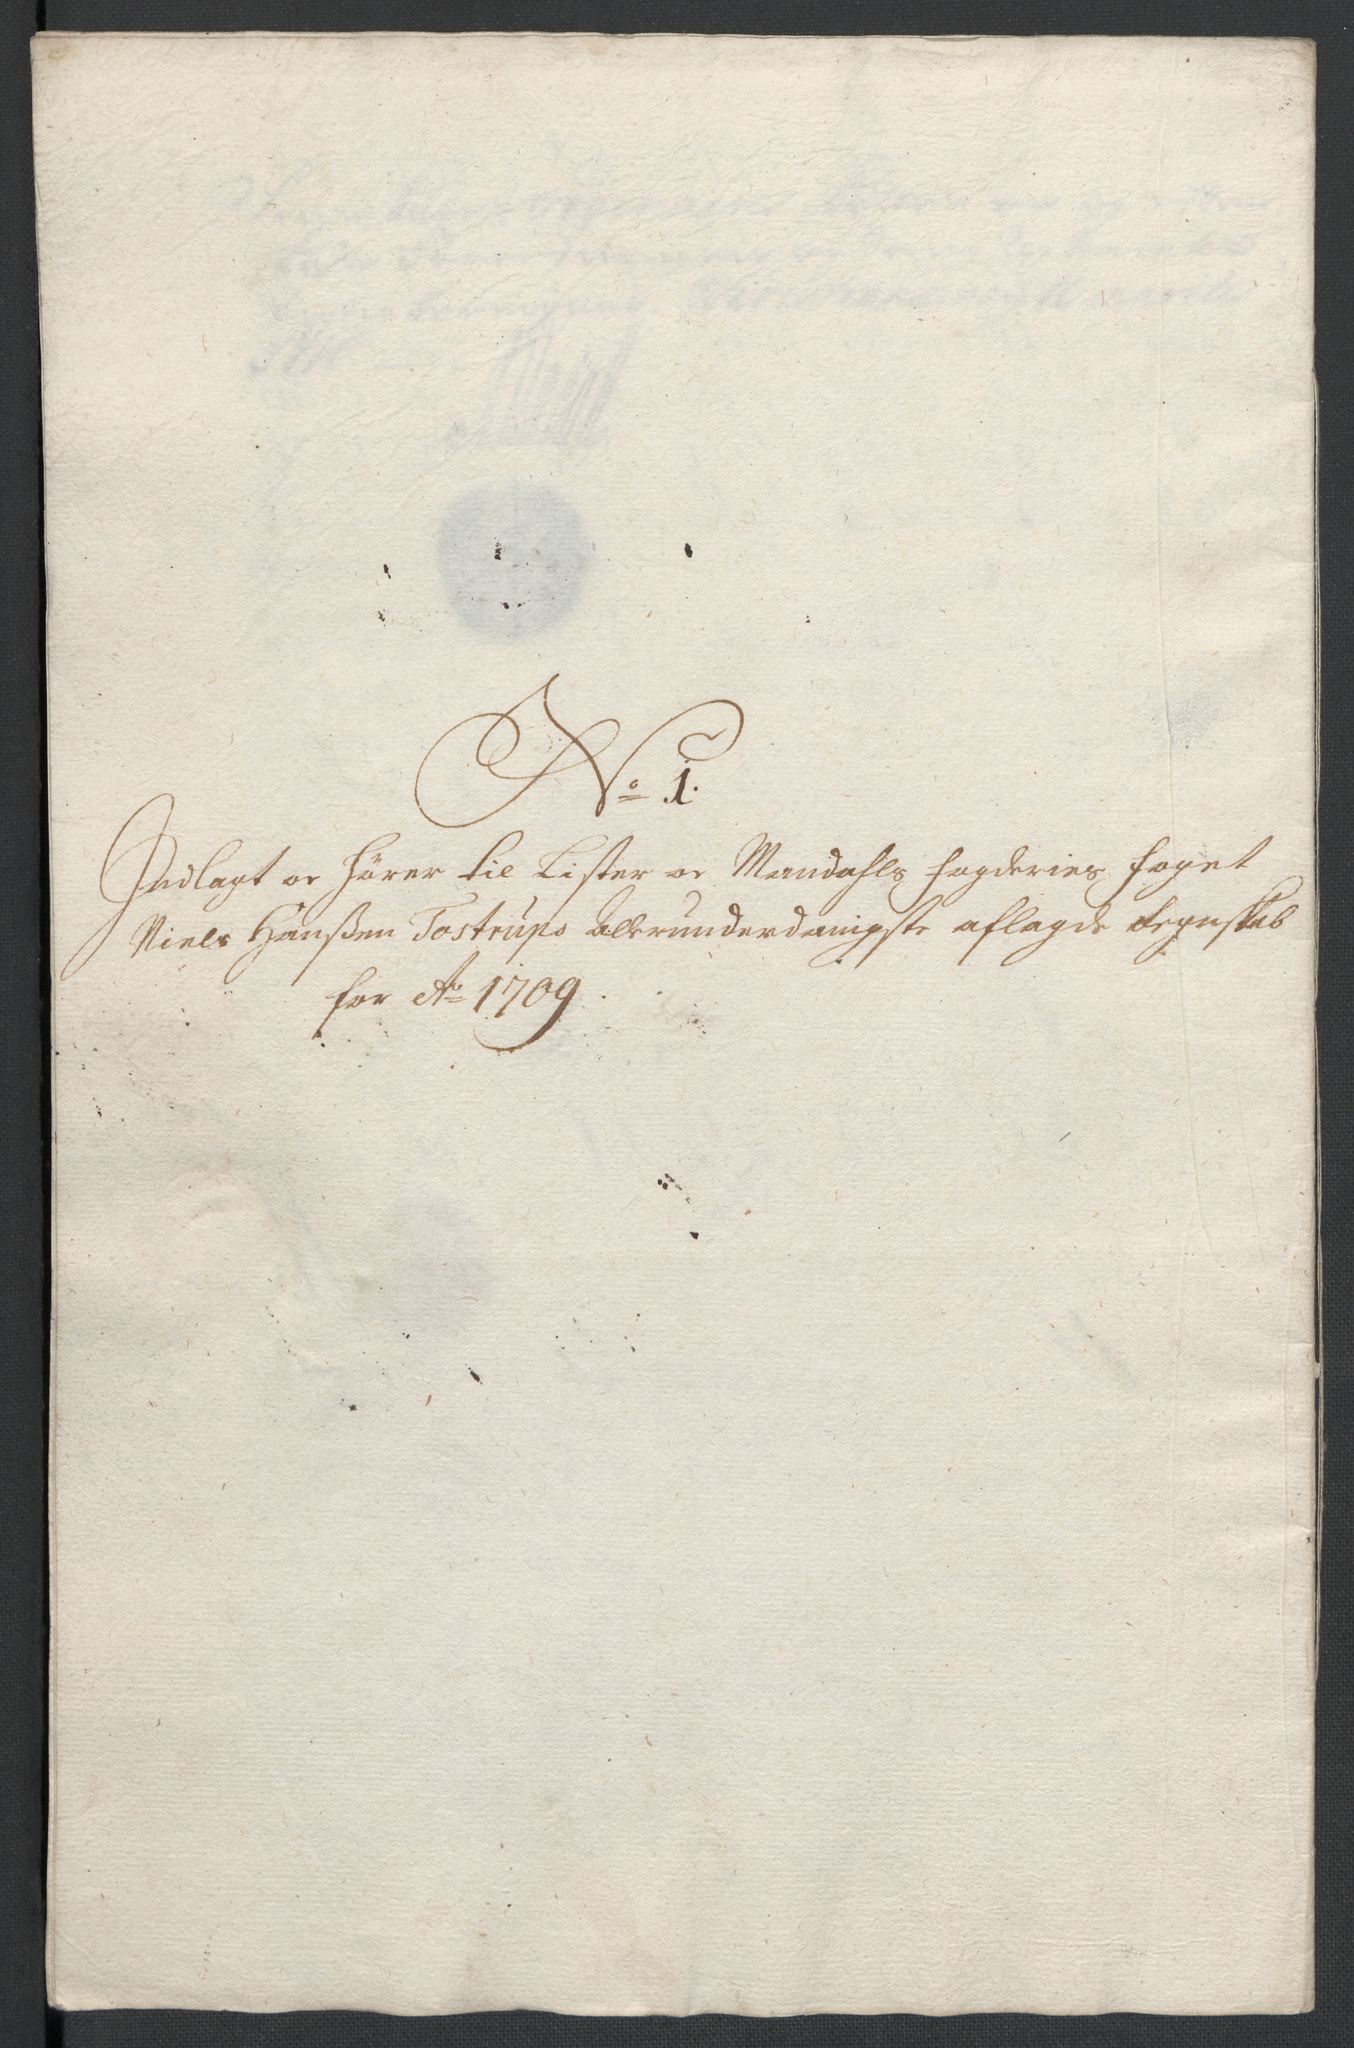 No 1.
Indlagt oc hører til Lister oc Mandahls fogderies foget
Niels Hanßen Tostrups allerunderdanigste aflagde Regnskab
for Ao 1709.